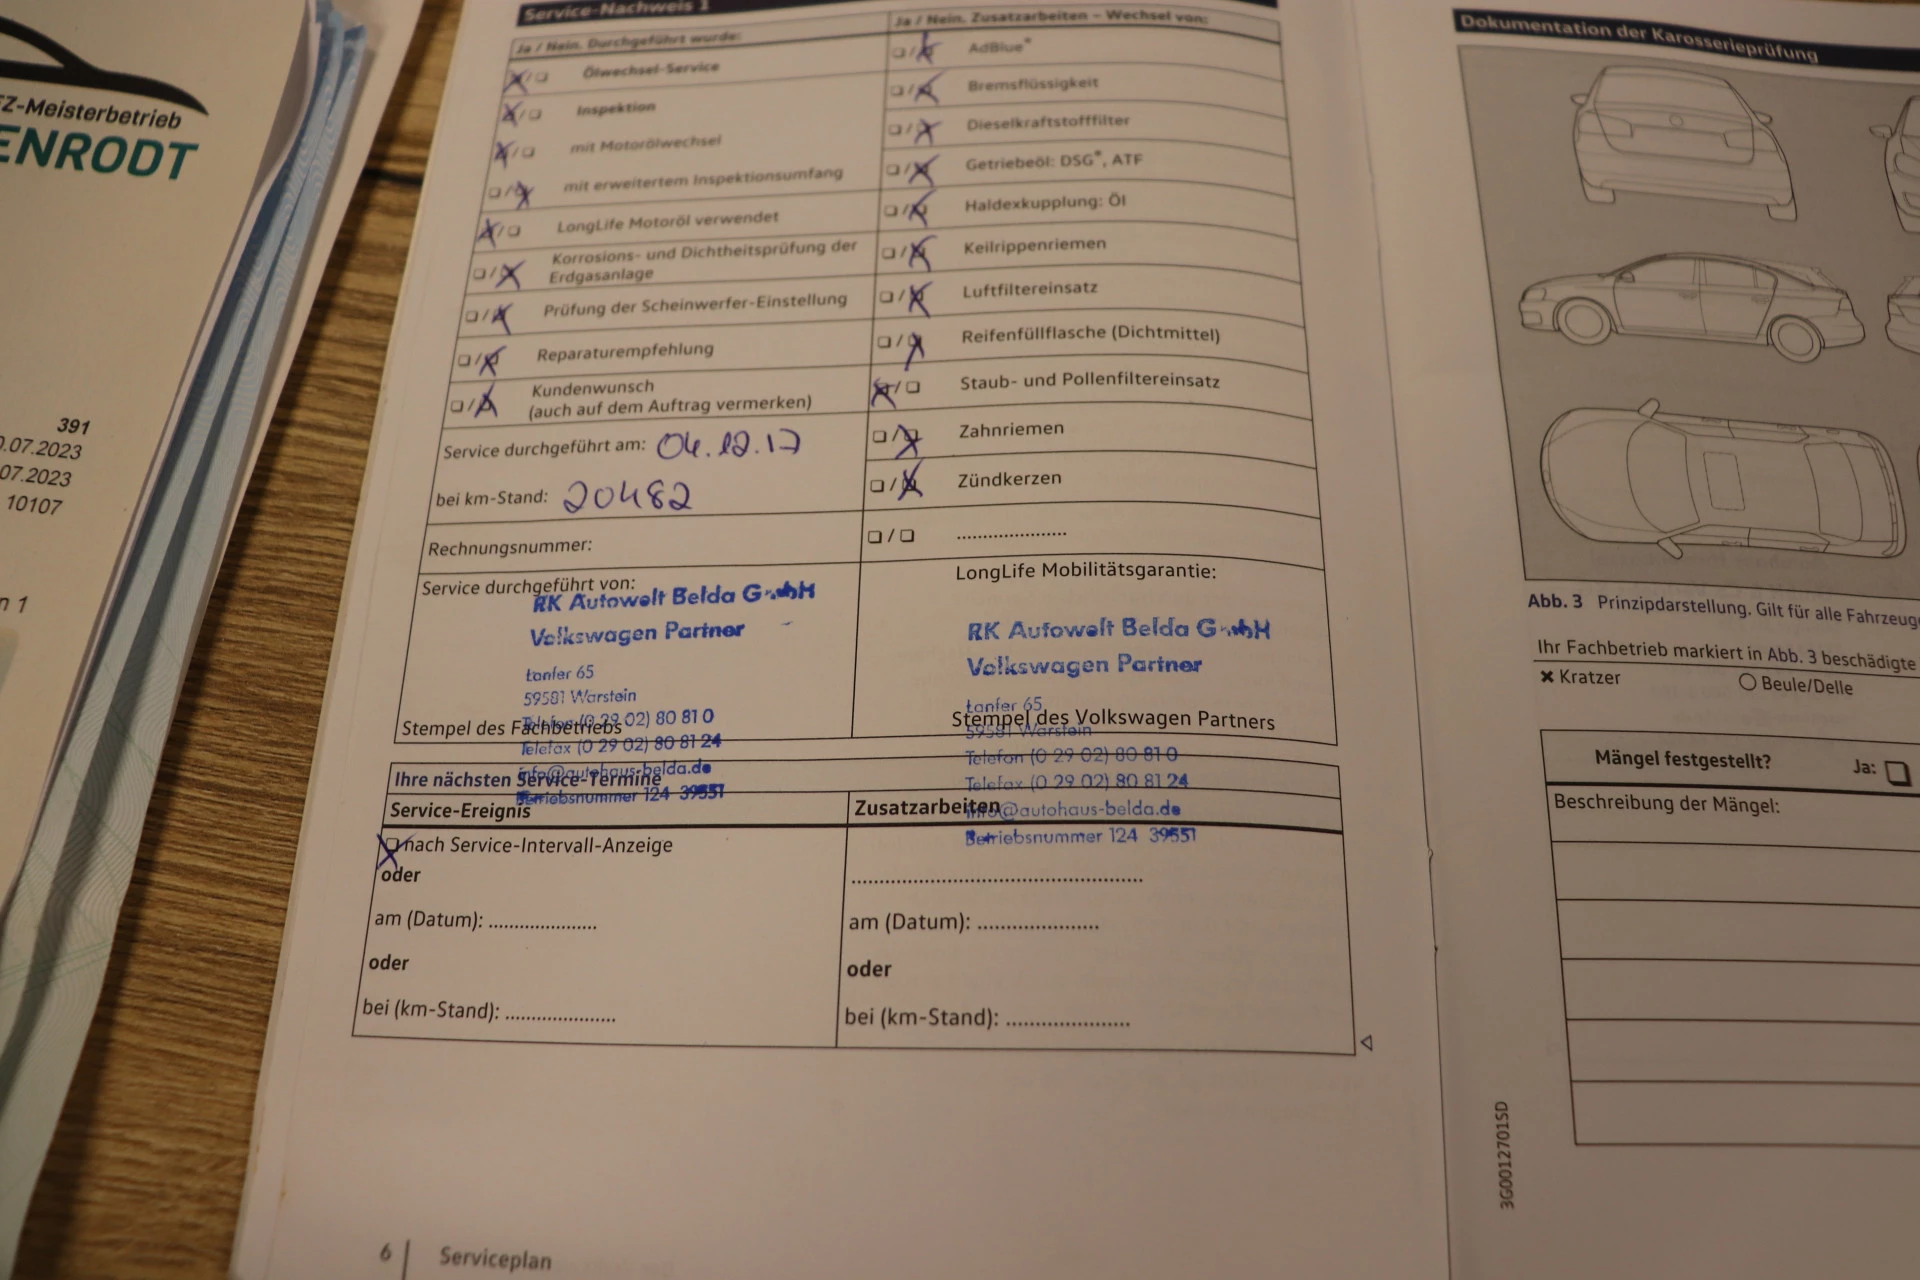 Z-Meisterbetrieb
ENRODT
391
.07.2023
07.2023
10107
n 1
Service-Nachweis 1
Ja / Nein. Durchgeführt wurde:
Ölwechsel-Service
Inspektion
mit Motorölwechsel
mit erweitertem Inspektionsumfang
LongLife Motoröl verwendet
Korrosions- und Dichtheitsprüfung der
Erdgasanlage
Prüfung der Scheinwerfer-Einstellung
Reparaturempfehlung
Kundenwunsch
(auch auf dem Auftrag vermerken)
Service durchgeführt am: 04.12.17
bei km-Stand: 20482
Rechnungsnummer:
Service durchgeführt von:
RK Autowelt Belda GmbH
Volkswagen Partner
Lanfer 65
59581 Warstein
Telefon (0 29 02) 80 81 0
Stempel des Fachbetriebs
Telefax (0 29 02) 80 81 24
info@autohaus-belda.de
Betriebsnummer 124 39551
Ja / Nein. Zusatzarbeiten – Wechsel von:
AdBlue®
Bremsflüssigkeit
Dieselkraftstofffilter
Getriebeöl: DSG®, ATF
Haldexkupplung: Öl
Keilrippenriemen
Luftfiltereinsatz
Reifenfüllflasche (Dichtmittel)
Staub- und Pollenfiltereinsatz
Zahnriemen
Zündkerzen
....................
LongLife Mobilitätsgarantie:
RK Autowelt Belda GmbH
Volkswagen Partner
Lanfer 65
Stempel des Volkswagen Partners
59581 Warstein
Telefon (0 29 02) 80 81 0
Telefax (0 29 02) 80 81 24
info@autohaus-belda.de
Betriebsnummer 124 39551
Ihre nächsten Service-Termine
Service-Ereignis
nach Service-Intervall-Anzeige
oder
am (Datum): ....................
oder
bei (km-Stand): ....................
Zusatzarbeiten
..................................................
am (Datum): ....................
oder
bei (km-Stand): ....................
6 | Serviceplan
Dokumentation der Karosserieprüfung
Abb. 3 Prinzipdarstellung. Gilt für alle Fahrzeug
Ihr Fachbetrieb markiert in Abb. 3 beschädigte
Kratzer
Beule/Delle
Mängel festgestellt? Ja:
Beschreibung der Mängel:
3G0012701SD